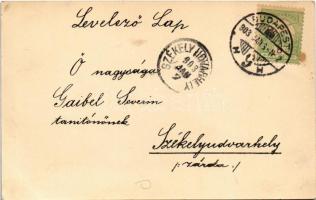 Levelező Lap
BUDAPEST
903 JAN
SZÉKELYUDVARHELY
903
JAN
7
Ő nagysága
Gaibel Severin
tanitónőnek
Székelyudvarhely
/: zárda :/